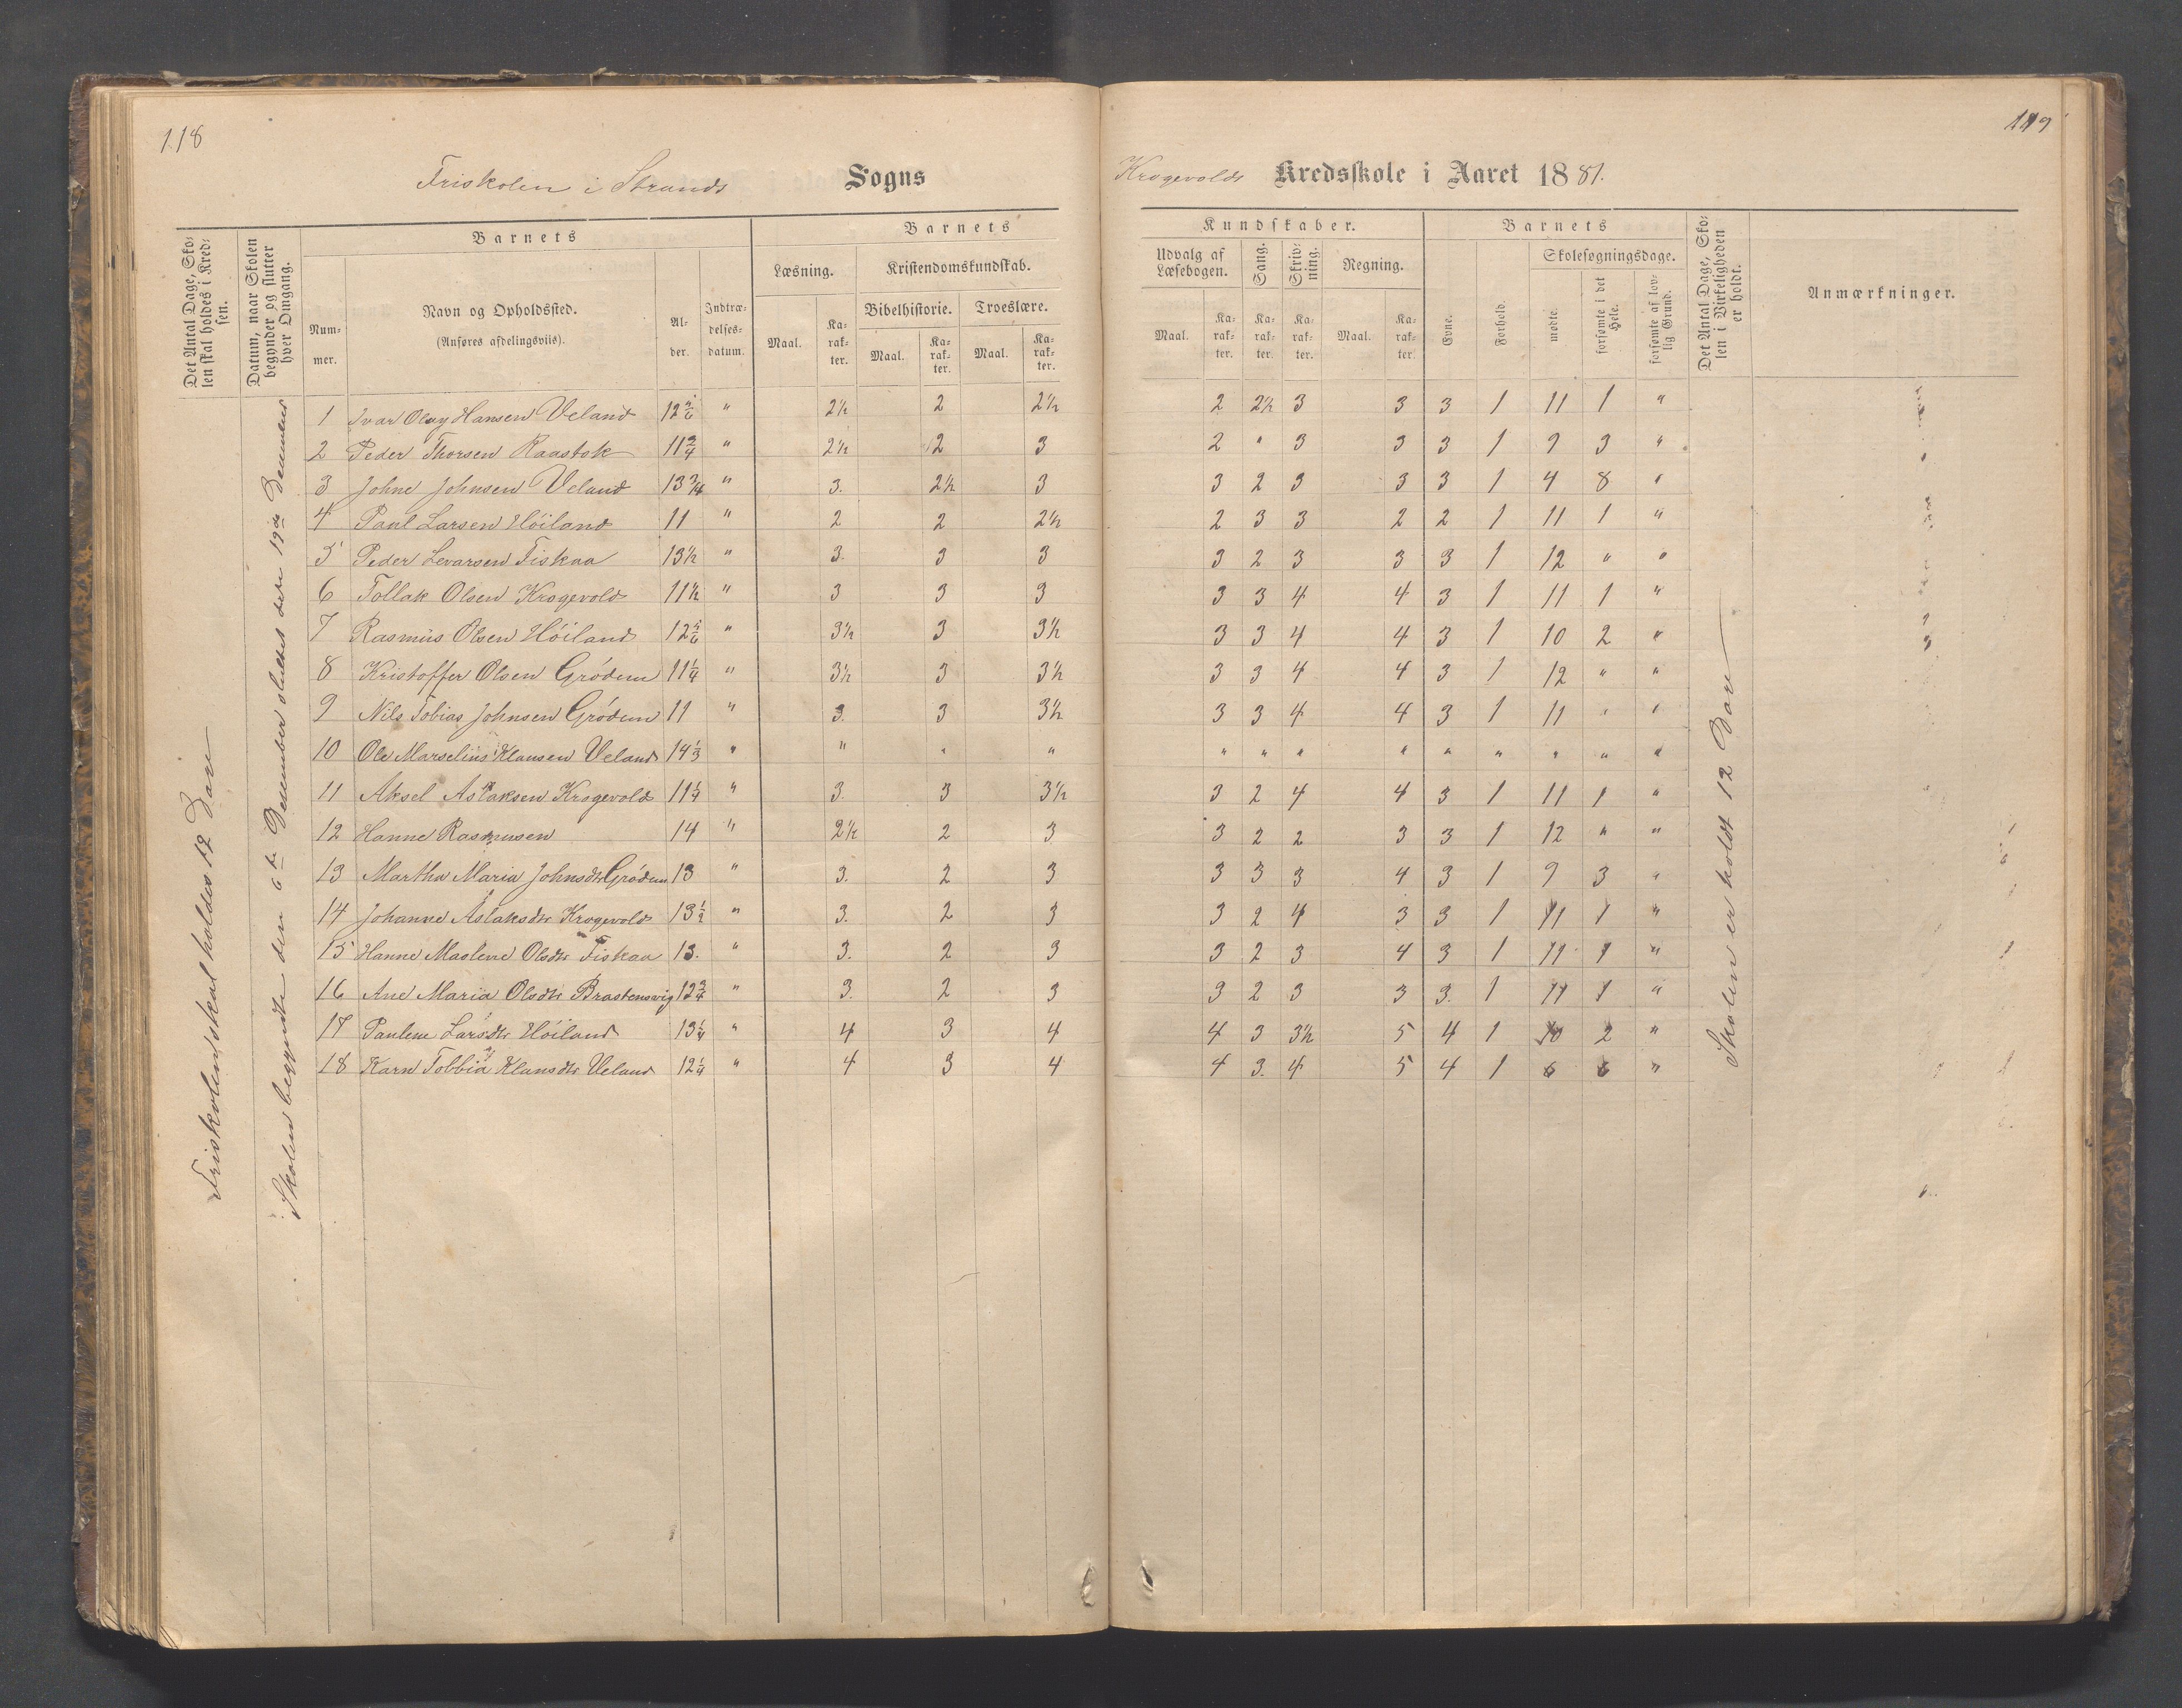 118
119
Friskolen i Strands Sogns
Krogevolds Kredsskole i Aaret 1881.
Det Antal Dage, Skolen skal holdes i Kredsen.
Datum, naar Skolen begynder og slutter hver Omgang.
Barnets
Nummer.
Navn og Opholdssted.
(Anføres afdelingsviis).
Alder.
Indtrædelsesdatum.
Barnets
Læsning.
Kristendomskundskab.
Bibelhistorie.
Troeslære.
Maal.
Karakter.
Maal.
Karakter.
Maal.
Karakter.
Kundskaber.
Udvalg af Læsebogen.
Sang.
Skrivning.
Regning.
Maal.
Karakter.
Karakter.
Karakter.
Maal.
Karakter.
Barnets
Evne.
Forhold.
Skolesøgningsdage.
mødte.
forsømte i det Hele.
forsømte af lovlig Grund.
Det Antal Dage, Skolen i Virkeligheden er holdt.
Anmærkninger.
Friskolen skal holdes 12 Dage
Skolen begyndte den 6te December sluttet den 19de December
1 Ivar Oluy Hansen Veland 12 " 2½ 2 2½ 2 2½ 3 3 3 1 11 1 "
2 Peder Thorsen Raastok 11¾ " 2½ 2 3 2 " 3 3 3 1 9 3 "
3 Johne Johnsen Veland 13¾ " 3. 2½ 3 3 2 3 3 3 1 4 8 "
4 Paul Larsen Høiland 11 " 2 2 2½ 2 3 3 2 2 1 11 1 "
5 Peder Levarsen Fiskaa 13½ " 3. 3 3 3 2 3 3 3 1 12 " "
6 Tollak Olsen Krogevold 11½ " 3 3 3 3 3 4 4 3 1 11 1 "
7 Rasmus Olsen Høiland 12 " 3½ 3 3½ 3 3 4 4 3 1 10 2 "
8 Kristoffer Olsen Grødem 11¼ " 3½ 3 3½ 3 3 4 4 3 1 12 " "
9 Nils Tobias Johnsen Grødem 11 " 3. 3 3½ 3 3 4 4 3 1 11 " "
10 Ole Marselius Klausen Veland 14⅓ " " " " " " " " " " " " "
11 Aksel Aslaksen Krogevold 11¼ " 3. 3 3½ 3 2 4 4 3 1 11 1 "
12 Hanne Rasmusen 14 " 2½ 2 3 3 2 2 3 3 1 12 " "
13 Martha Maria Johnsdtr Grødem 13 " 3. 2 3 3 3 3 4 3 1 9 3 "
14 Johanne Aslaksdtr Krogevold 13½ " 3. 2 3 3 2 4 3 3 1 11 1 "
15 Hanne Maslene Olsdtr Fiskaa 13. " 3. 2 3 3 2 3 4 3 1 11 1 "
16 Ane Maria Olsdtr Brastensvig 12¾ " 3. 2 3 3 2 3 3 3. 1 11 1 "
17 Paulene Larsdtr Høiland 13¼ " 4 3 4 4 3 3½ 5 4 1 10 2 "
18 Karn Tobbia Klausdtr Veland 12¼ " 4 3 4 4 3. 4 5 4 1 6 6 "
Skolen er holdt 12 Dage